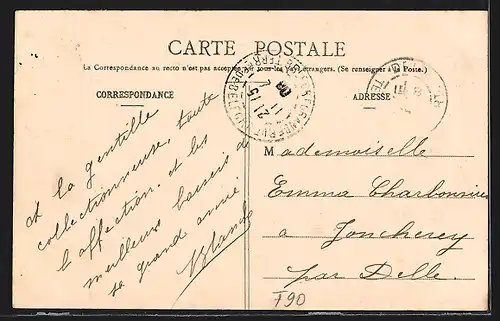 CARTE POSTALE
La Correspondance au recto n'est pas acceptée par tous les pays étrangers. (Se renseigner à la Poste.)
CORRESPONDANCE
ADRESSE
21-15
11
08
à la gentille
collectionneuse, toute
l'affection, et les
meilleurs baisers de
sa grand amie
Blanche
Mademoiselle
Emma Charbonnier
à Joncherey
par Delle.
F90